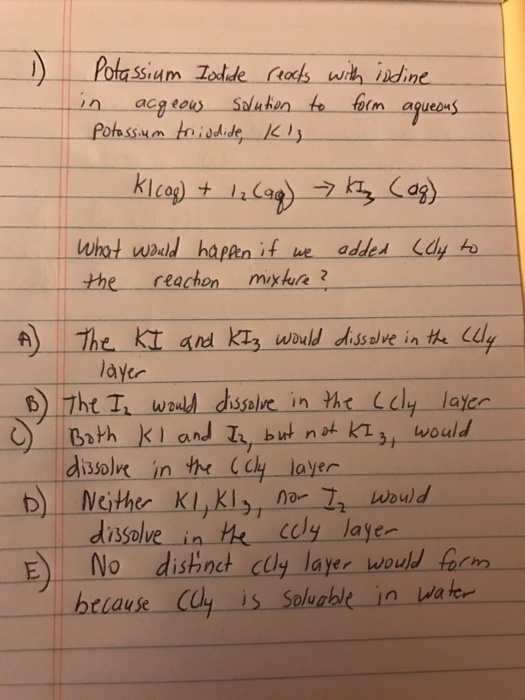 1) Potassium Iodide reacts with iodine
in acqeous solution to form aqueous
Potassium triiodide, KI3
KI(aq) + I2(aq) → KI3 (aq)
What would happen if we added CCl4 to
the reaction mixture?
A) The KI and KI3 would dissolve in the CCl4
layer
B) The I2 would dissolve in the CCl4 layer
C) Both KI and I2, but not KI3, would
dissolve in the CCl4 layer
D) Neither KI, KI3, nor I2 would
dissolve in the CCl4 layer
E) No distinct CCl4 layer would form
because CCl4 is soluable in water